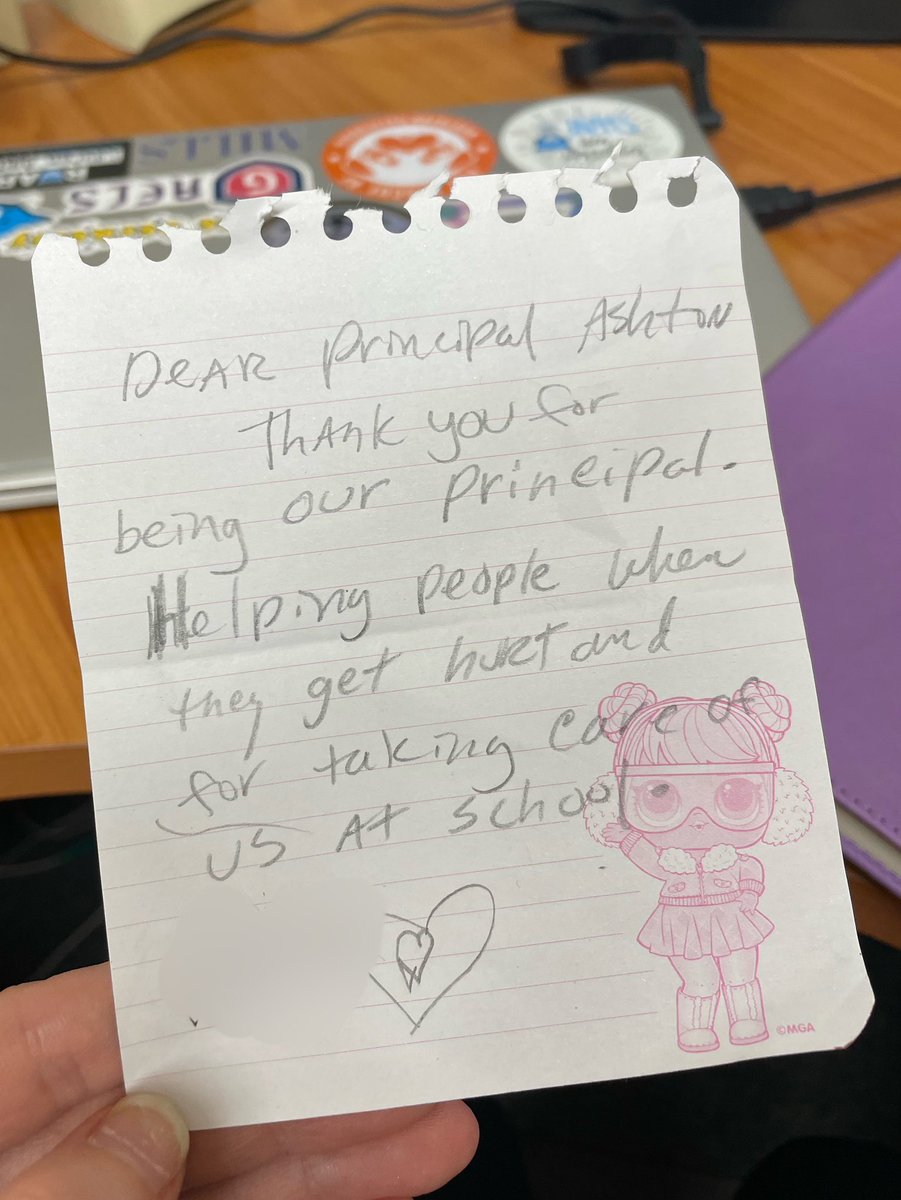 MILLS
GRELS
Dear Principal Ashton
Thank you for
being our principal.
Helping people when
they get hurt and
for taking care of
us At school.
©MGA